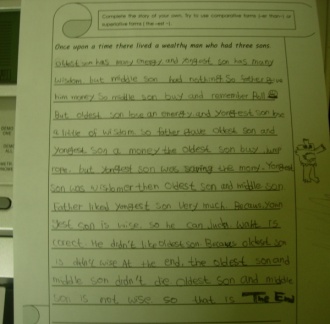 Complete the story of your own. Try to use comparative forms (er than~), or
superlative forms (the ~est ~).
Once upon a time there lived a wealthy man who had three sons.
Oldest son has many energy and youngest son has many
wisdom. but middle son had nothing. So father give
him money. So middle son buy and remember
But oldest son have an energy and youngest son have
a little of wisdom. So father gave oldest son and
youngest son a money. the oldest son buy
rope. but youngest son was saving this money. Youngest
son was then oldest son and middle son
Father liked youngest son very much. Because youn
gest son is wise. so he can what is
correct. He didn't like oldest son Because oldest son
is didn't wise. At the end, the oldest son and
middle son didn't die. oldest son and middle
son is not wise so that is The End